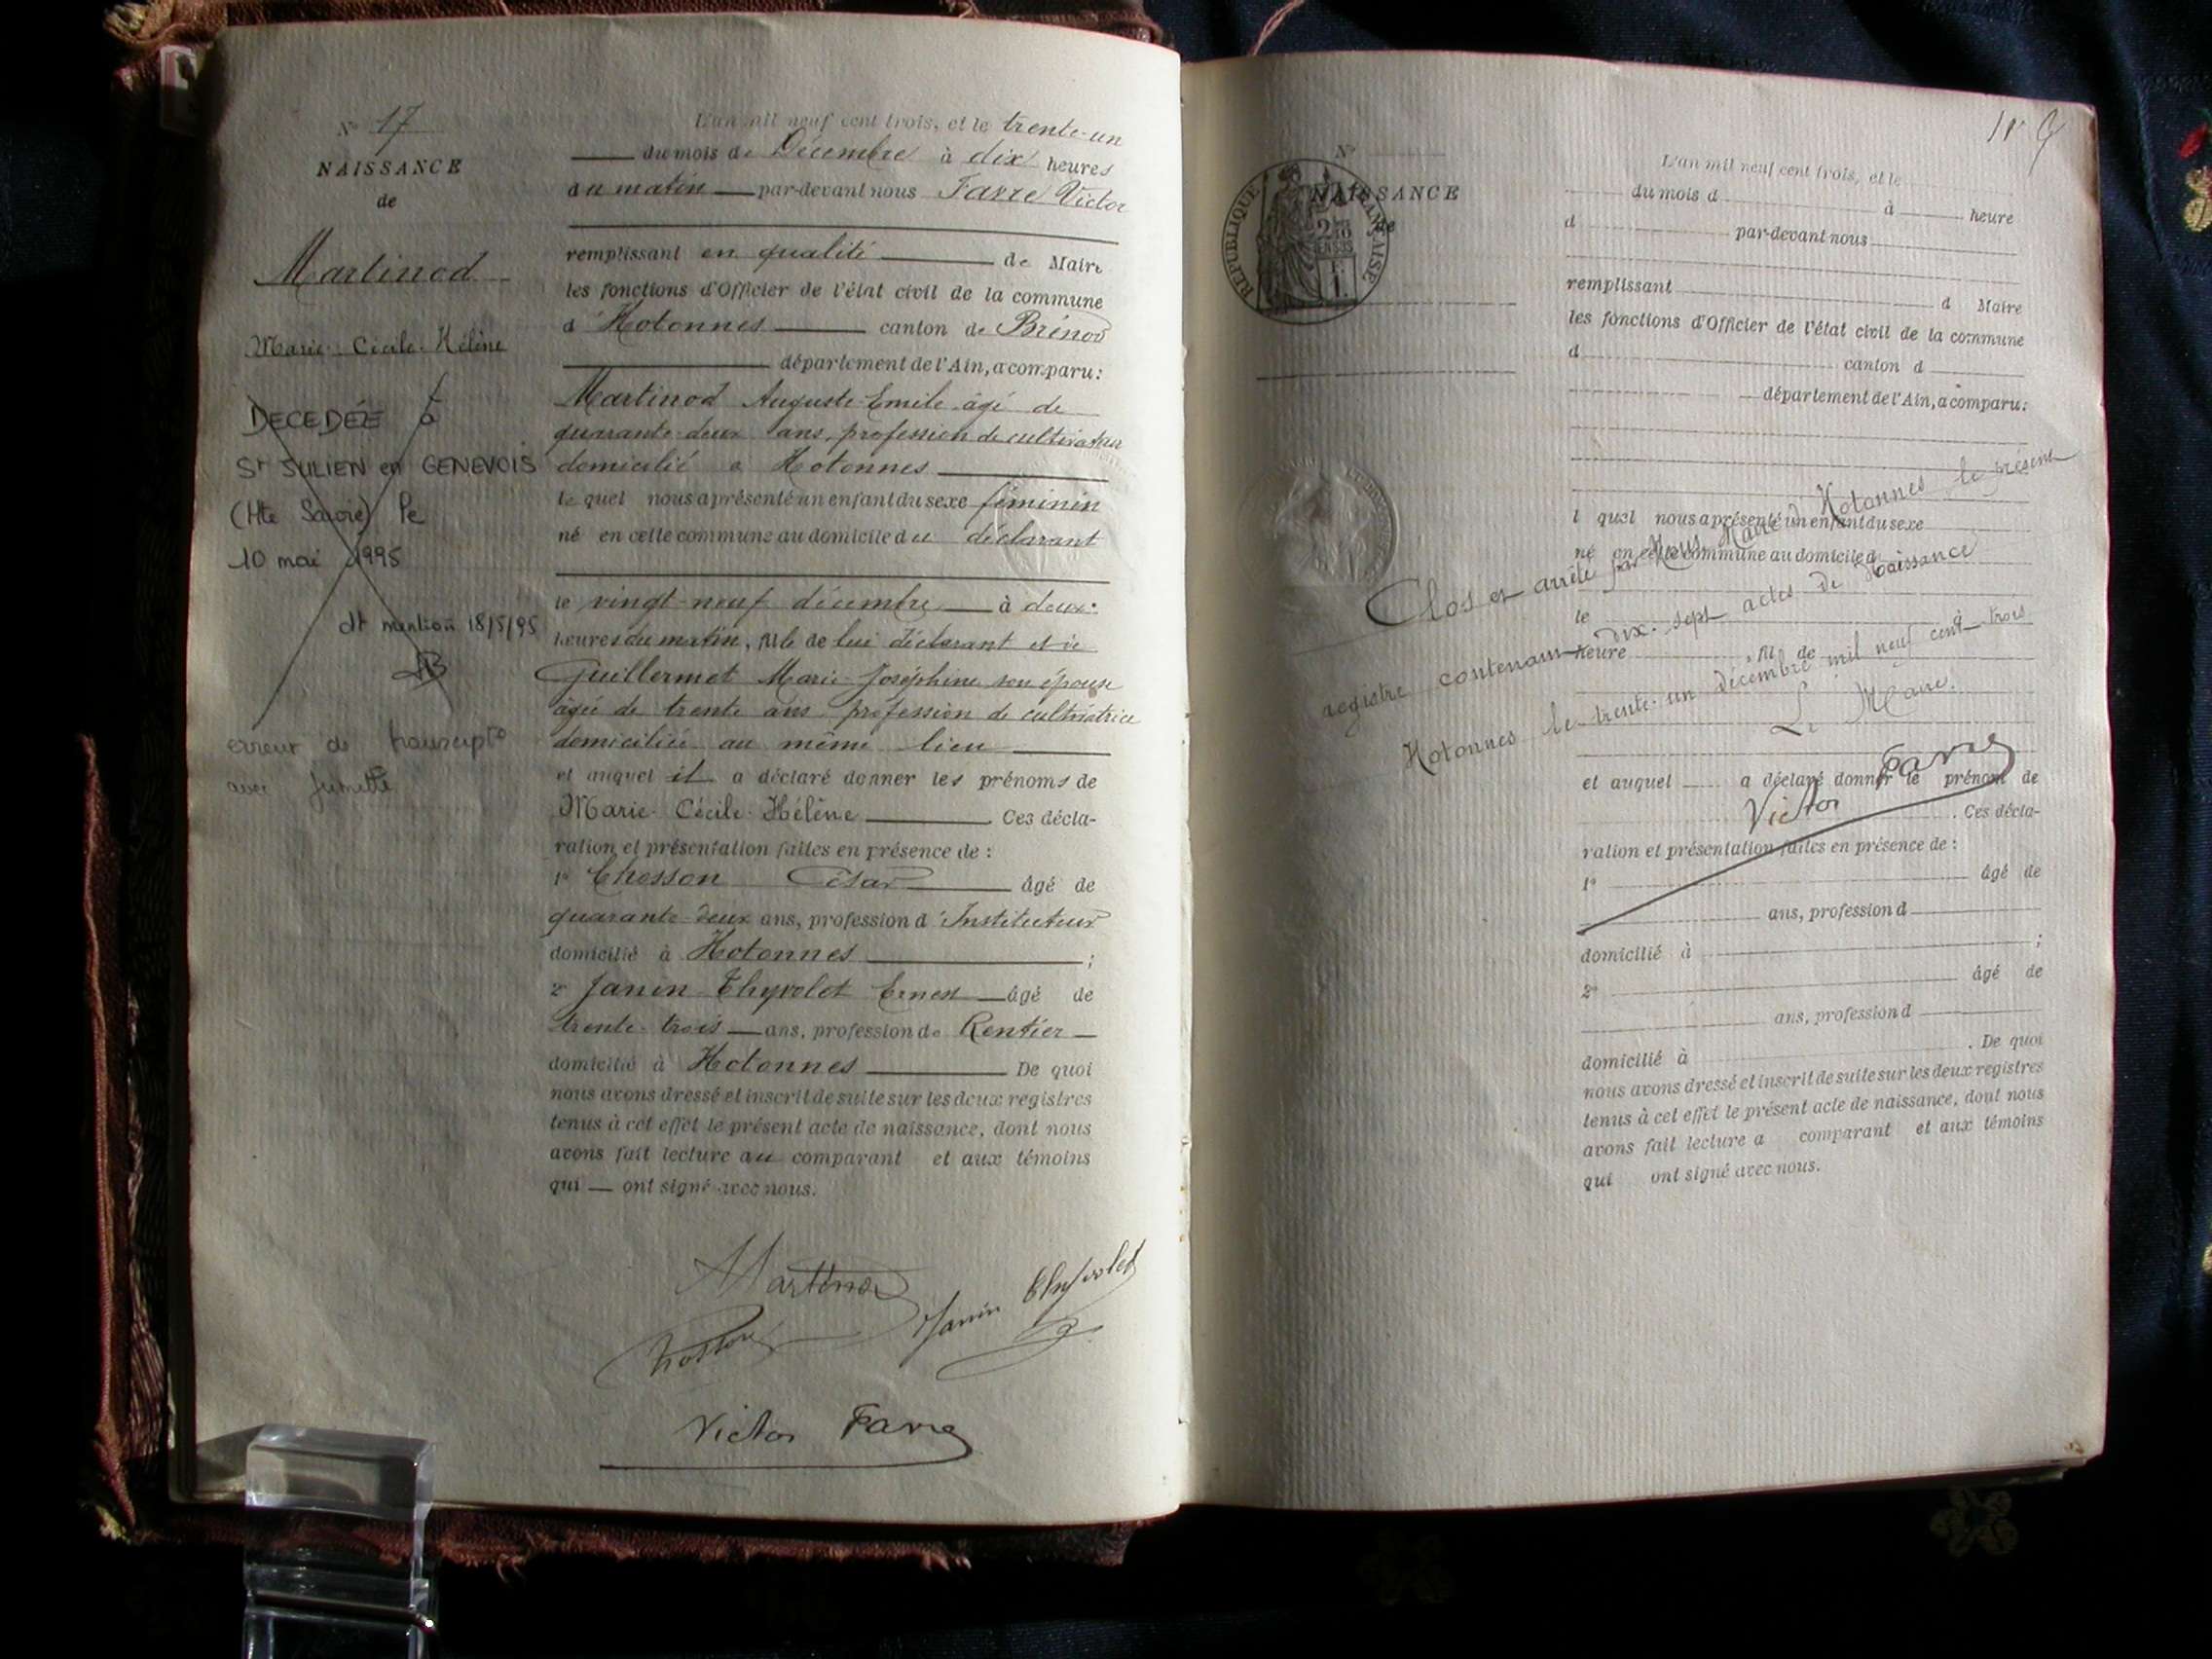 N° 17
NAISSANCE
de
Martinod
Marie-Cécile-Hélène
DECEDÉE à
St JULIEN en GENEVOIS
(Hte Savoie) le
10 mai 1995
dt mention 18/5/95
erreur de transcript°
avec jumelle
L'an mil neuf cent trois, et le trente-un
du mois de Décembre à dix heures
du matin par-devant nous Favre Victor
remplissant en qualité de Maire
les fonctions d'Officier de l'état civil de la commune
d'Hotonnes canton de Brénod
département de l'Ain, a comparu:
Martinod Auguste Emile âgé de
quarante-deux ans, profession de cultivateur
domicilié à Hotonnes
lequel nous a présenté un enfant du sexe féminin
né en cette commune au domicile du déclarant
le vingt-neuf décembre à deux
heures du matin, fille de lui déclarant et de
Guillermet Marie-Joséphine son épouse
âgée de trente ans profession de cultivatrice
domiciliée au même lieu
et auquel il a déclaré donner les prénoms de
Marie-Cécile-Hélène Ces décla-
ration et présentation faites en présence de :
1° Chosson César âgé de
quarante-deux ans, profession d'Instituteur
domicilié à Hotonnes ;
2° Janin-Thyvolet Ernest âgé de
trente-trois ans, profession de Rentier
domicilié à Hotonnes De quoi
nous avons dressé et inscrit de suite sur les deux registres
tenus à cet effet le présent acte de naissance, dont nous
avons fait lecture au comparant et aux témoins
qui ont signé avec nous.
Martinod
Chosson
Janin Thyvolet
Victor Favre
N°
NAISSANCE
de
RÉPUBLIQUE FRANÇAISE
L'an mil neuf cent trois, et le
du mois d à heure
d par-devant nous
remplissant d Maire
les fonctions d'Officier de l'état civil de la commune
d canton d
département de l'Ain, a comparu:
l quel nous a présenté un enfant du sexe
né en cette commune au domicile d
le
heure , fil de
et auquel a déclaré donner le prénom de
. Ces décla-
ration et présentation faites en présence de :
1° âgé de
ans, profession d
domicilié à ;
2° âgé de
ans, profession d
domicilié à . De quoi
nous avons dressé et inscrit de suite sur les deux registres
tenus à cet effet le présent acte de naissance, dont nous
avons fait lecture a comparant et aux témoins
qui ont signé avec nous.
Clos et arrêté par Nous, Maire d'Hotonnes le présent
registre contenant dix-sept actes de Naissance
Hotonnes le trente-un décembre mil neuf cent trois
Le Maire.
Victor Favre